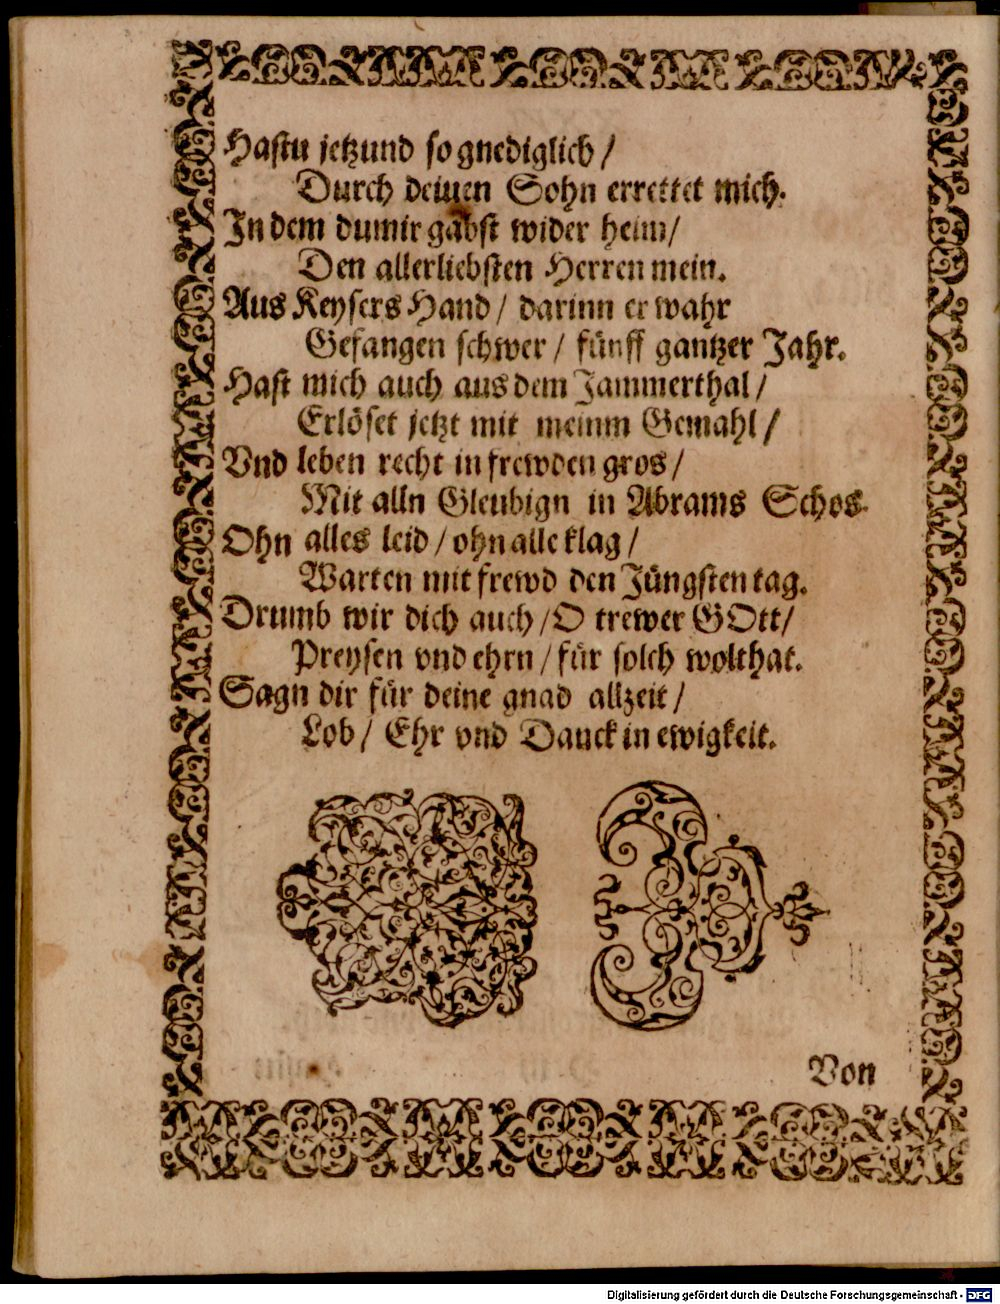 Hastu jetzund so gnediglich /
Durch deinen Sohn errettet mich.
In dem du mir gabst wider heim /
Den allerliebsten Herren mein.
Aus Keysers Hand / darinn er wahr
Gefangen schwer / fünff gantzer Jahr.
Hast mich auch aus dem Jammerthal /
Erlöset jetzt mit meinm Gemahl /
Vnd leben recht in frewden gros /
Mit alln Gleubign in Abrams Schos.
Ohn alles leid / ohn alle klag /
Warten mit frewd den Jüngsten tag.
Drumb wir dich auch / O trewer GOtt /
Preysen vnd ehrn / für solch wolthat.
Sagn dir für deine gnad allzeit /
Lob / Ehr vnd Danck in ewigkeit.
Von
Digitalisierung gefördert durch die Deutsche Forschungsgemeinschaft - DFG